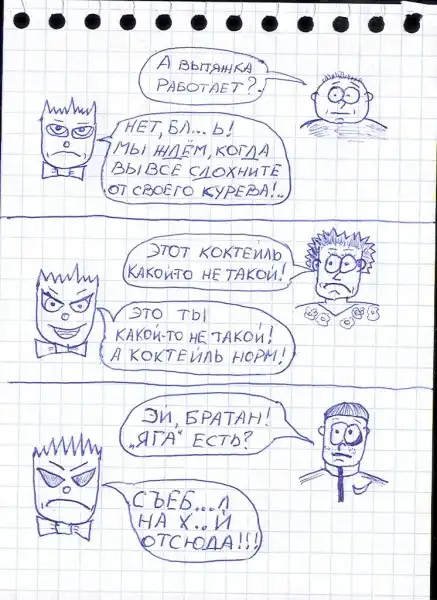 А ВЫТЯЖКА
РАБОТАЕТ?
НЕТ, БЛ...Ь!
МЫ ЖДЁМ, КОГДА
ВЫ ВСЕ СДОХНИТЕ
ОТ СВОЕГО КУРЕВА!..
ЭТОТ КОКТЕЙЛЬ
КАКОЙ-ТО НЕ ТАКОЙ!
ЭТО ТЫ
КАКОЙ-ТО НЕ ТАКОЙ!
А КОКТЕЙЛЬ НОРМ!
ЭЙ, БРАТАН!
„ЯГА“ ЕСТЬ?
СЪЕБ...Л
НА Х..Й
ОТСЮДА!!!